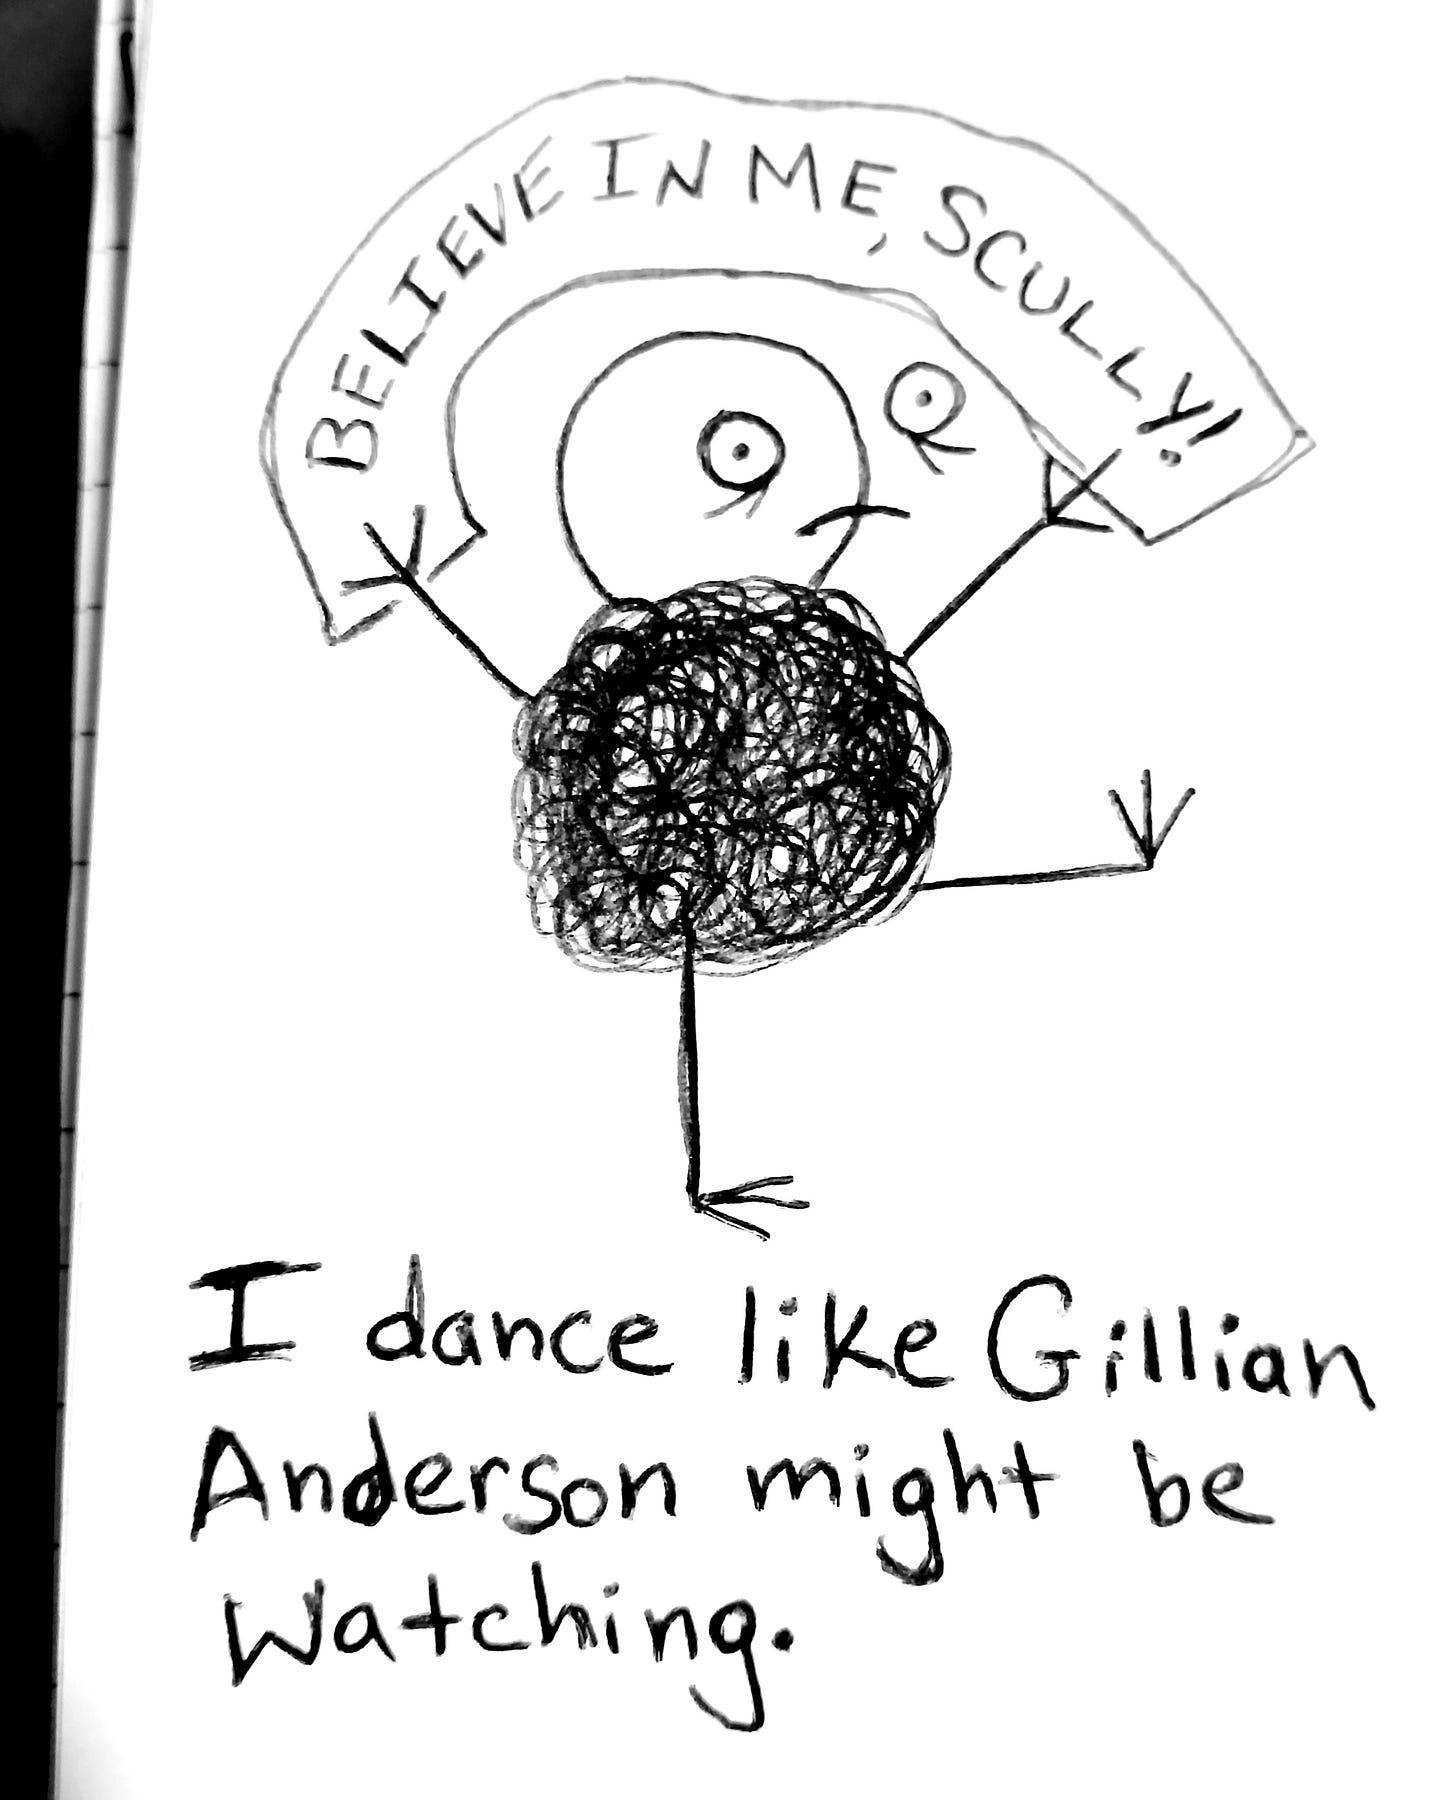 BELIEVE IN ME, SCULLY!
I dance like Gillian
Anderson might be
Watching.